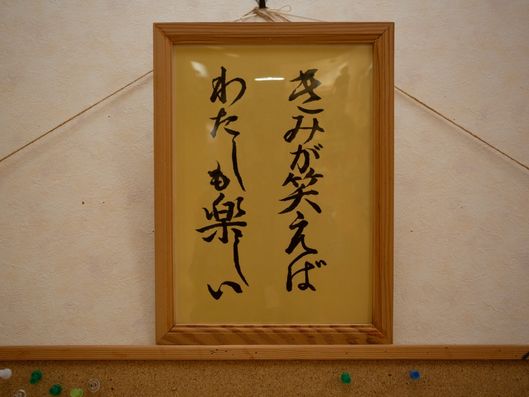 きみが笑えば
わたしも楽しい